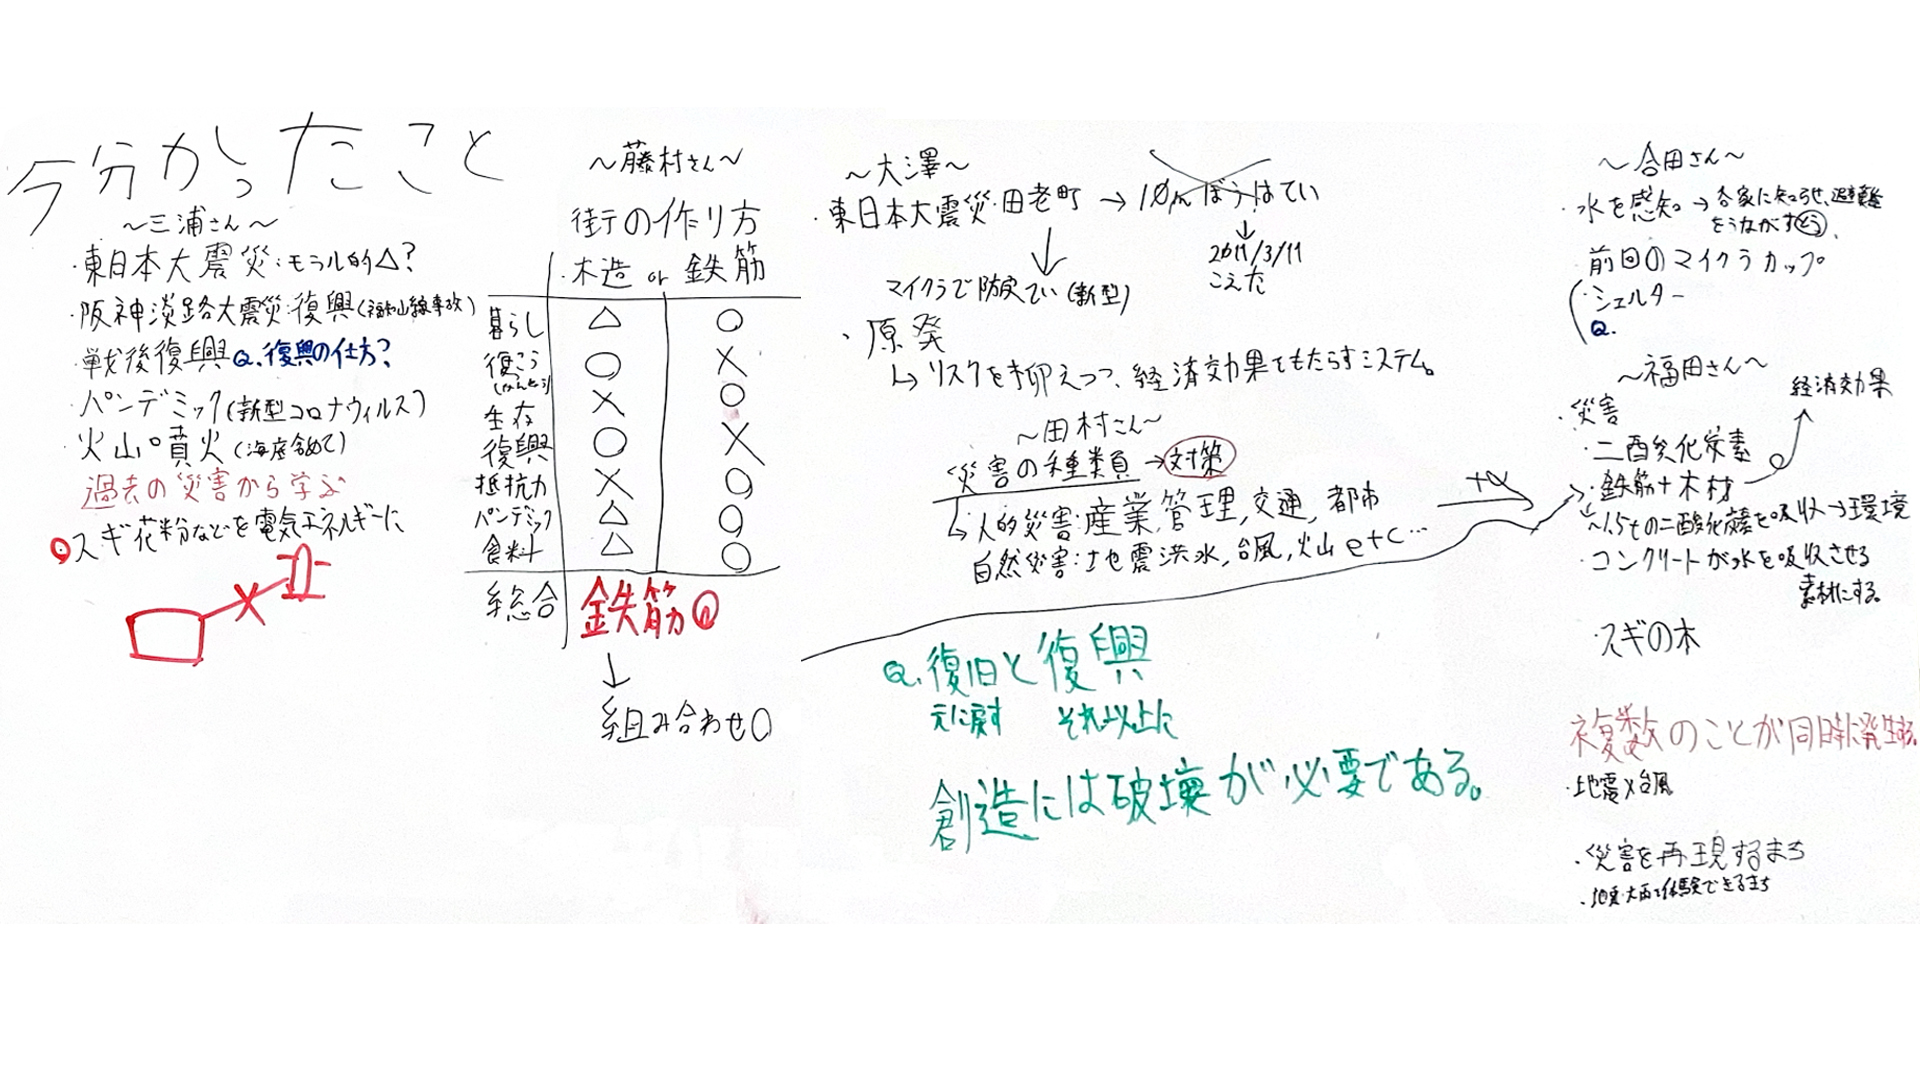 今分かったこと
～三浦さん～
・東日本大震災:モラル的△?
・阪神淡路大震災:復興(福知山線事故)
・戦後復興 Q.復興の仕方?
・パンデミック(新型コロナウィルス)
・火山の噴火(海底含めて)
過去の災害から学ぶ
スギ花粉などを電気エネルギーに
～藤村さん～
街の作り方
木造 or 鉄筋
暮らし △ ○
復こう ○ ×
生存 × ○
復興 ○ ×
抵抗力 × ○
パンデミック △ ○
食料 △ ○
総合 鉄筋
↓
組み合わせ○
～大澤～
・東日本大震災・田老町 → 10mぼうはてい
↓
2011/3/11
こえた
↓
マイクラで防てい(新型)
・原発
↳リスクを抑えつつ、経済効果をもたらすシステム。
～田村さん～
災害の種類 → 対策
↳人的災害:産業,管理,交通,都市
自然災害:地震洪水,台風,火山etc…
+α
Q.復旧と復興
元に戻す それ以上に
創造には破壊が必要である。
～合田さん～
・水を感知 → 各家に知らせ、避難
をうながす
前回のマイクラカップ
・シェルター
Q.
～福田さん～
経済効果
・災害
・二酸化炭素
・鉄筋+木材
～1.5tの二酸化炭素を吸収→環境
・コンクリートが水を吸収させる
素材にする。
・スギの木
複数のことが同時に発生する。
・地震×台風
・災害を再現するまち
・地震・大雨を体験できるまち